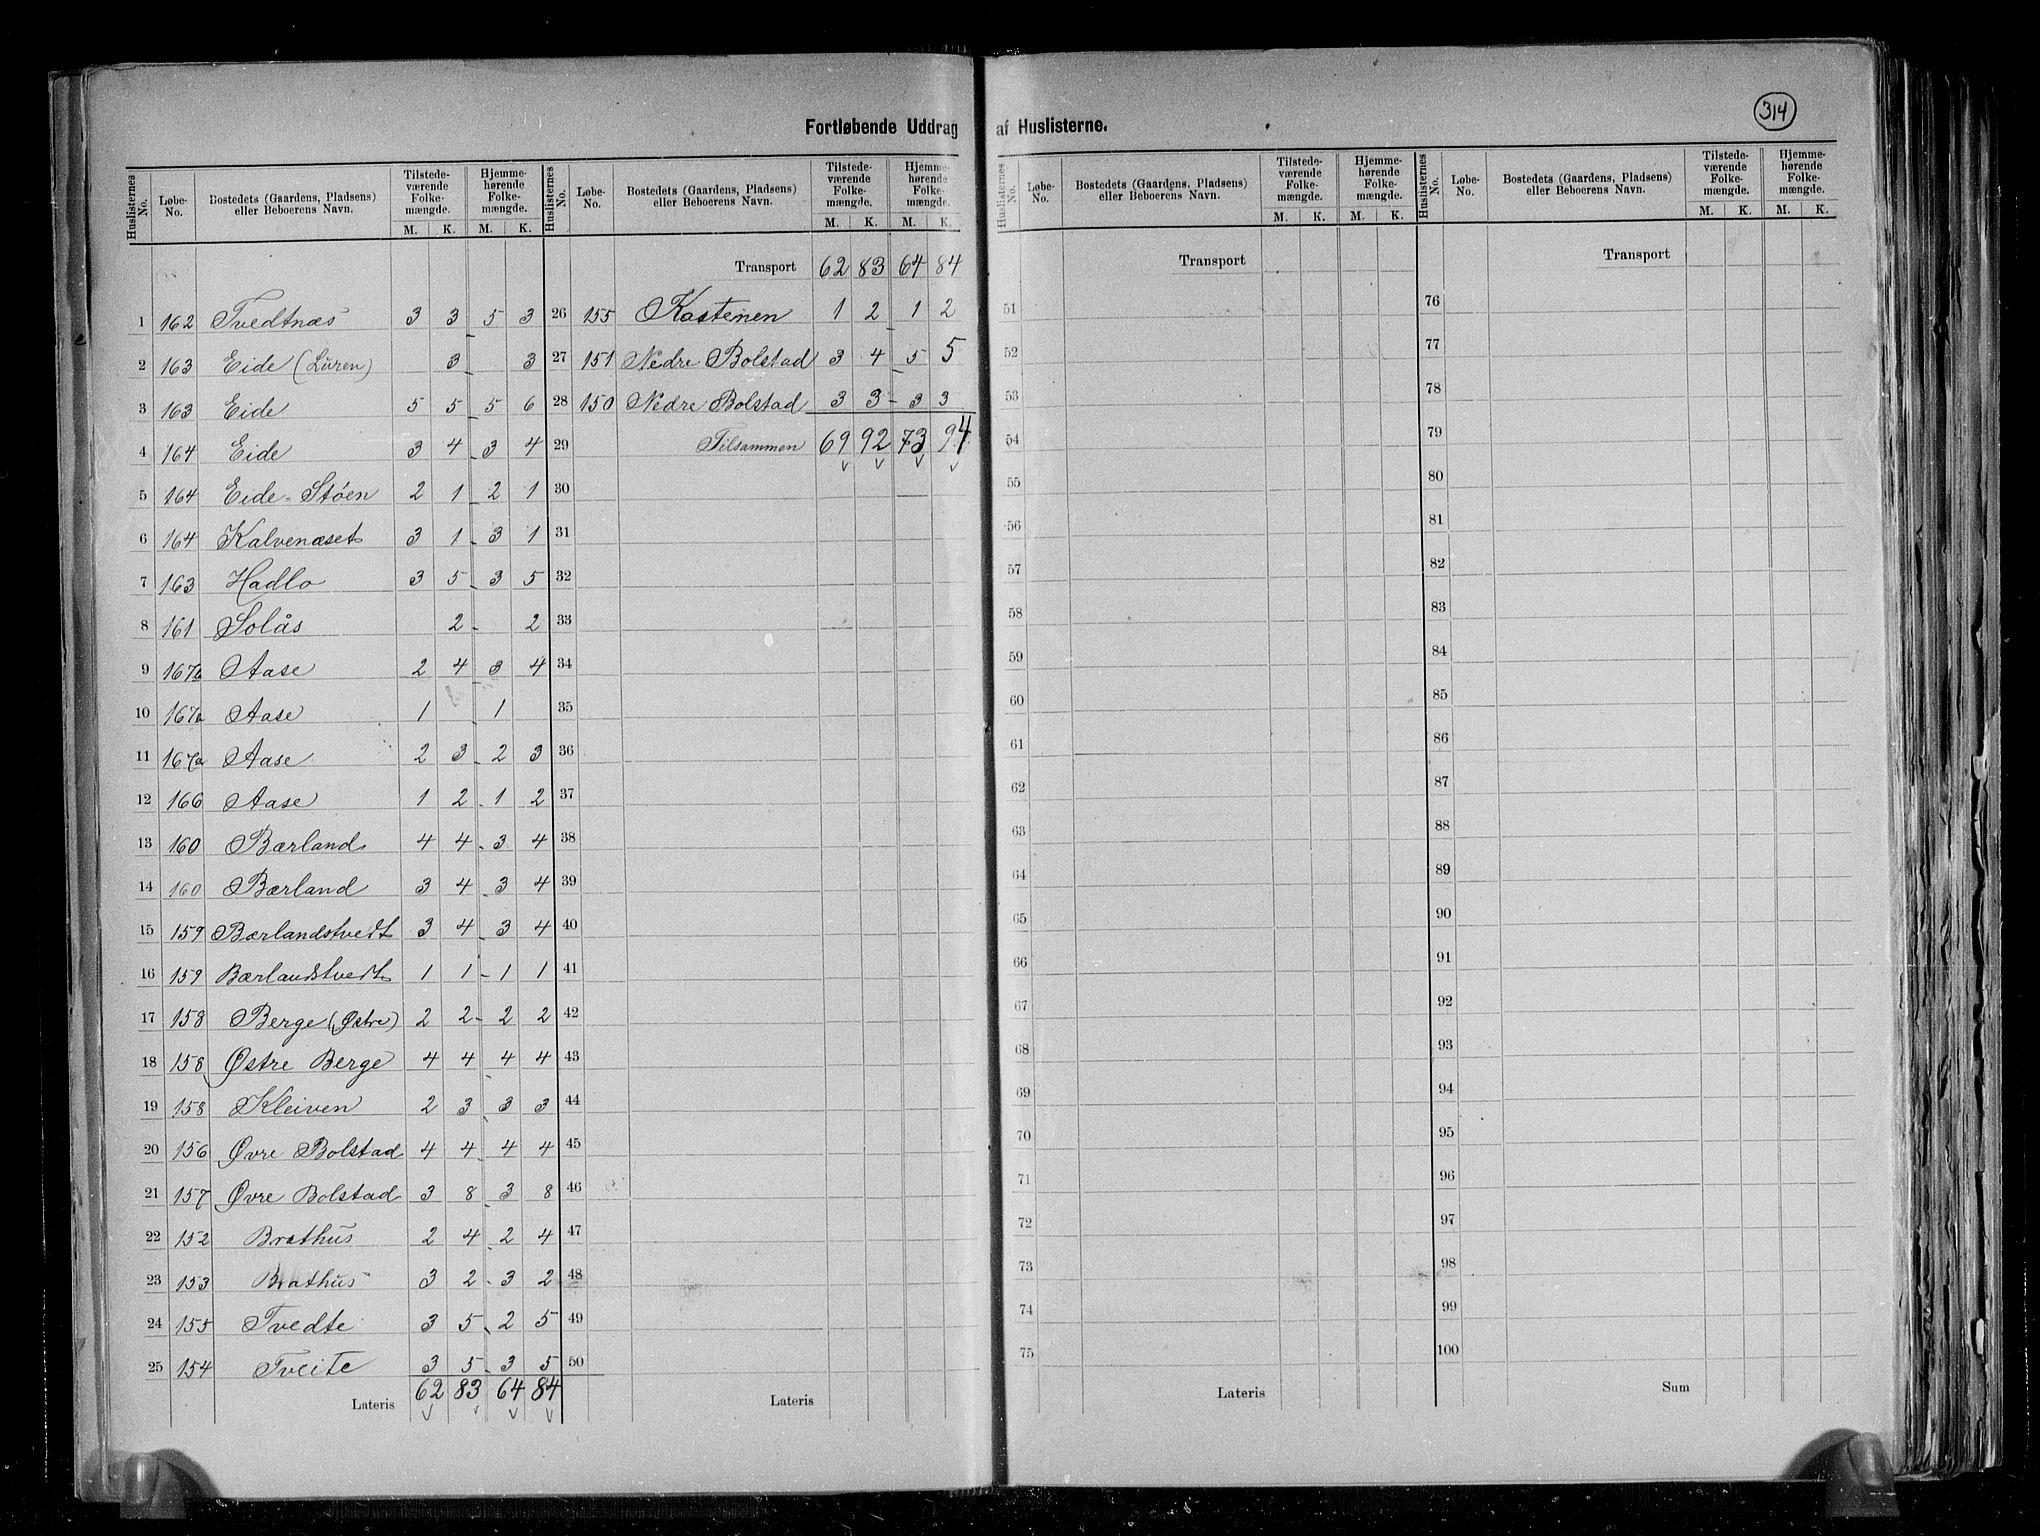 Fortløbende Uddrag af Huslisterne.
314
Huslisternes No. | Løbe-No. | Bostedets (Gaardens, Pladsens) eller Beboerens Navn. | Tilstedeværende Folkemængde. M. K. | Hjemmehørende Folkemængde. M. K.
1 162 Tvedtnæs 3 3 5 3
2 163 Eide (Lüren) 3 3
3 163 Eide 5 5 5 6
4 164 Eide 3 4 3 4
5 164 Eide-Støen 2 1 2 1
6 164 Kalvenæset 3 1 3 1
7 163 Hadlo 3 5 3 5
8 161 Solås 2 2
9 167a Aase 2 4 3 4
10 167a Aase 1 1
11 167a Aase 2 3 2 3
12 166 Aase 1 2 1 2
13 160 Bærland 4 4 3 4
14 160 Bærland 3 4 3 4
15 159 Bærlandstvedt 3 4 3 4
16 159 Bærlandstvedt 1 1 1 1
17 158 Berge (Østre) 2 2 2 2
18 158 Østre Berge 4 4 4 4
19 158 Kleiven 2 3 3 3
20 156 Øvre Bolstad 4 4 4 4
21 157 Øvre Bolstad 3 8 3 8
22 152 Brathus 2 4 2 4
23 153 Brathus 3 2 3 2
24 155 Tvedte 3 5 2 5
25 154 Tveite 3 5 3 5
Lateris 62 83 64 84
Huslisternes No. | Løbe-No. | Bostedets (Gaardens, Pladsens) eller Beboerens Navn. | Tilstedeværende Folkemængde. M. K. | Hjemmehørende Folkemængde. M. K.
Transport 62 83 64 84
26 155 Kastenen 1 2 1 2
27 151 Nedre Bolstad 3 4 5 5
28 150 Nedre Bolstad 3 3 3 3
29 Tilsammen 69 92 73 94
30
31
32
33
34
35
36
37
38
39
40
41
42
43
44
45
46
47
48
49
50
Lateris
Huslisternes No. | Løbe-No. | Bostedets (Gaardens, Pladsens) eller Beboerens Navn. | Tilstedeværende Folkemængde. M. K. | Hjemmehørende Folkemængde. M. K.
Transport
51
52
53
54
55
56
57
58
59
60
61
62
63
64
65
66
67
68
69
70
71
72
73
74
75
Lateris
Huslisternes No. | Løbe-No. | Bostedets (Gaardens, Pladsens) eller Beboerens Navn. | Tilstedeværende Folkemængde. M. K. | Hjemmehørende Folkemængde. M. K.
Transport
76
77
78
79
80
81
82
83
84
85
86
87
88
89
90
91
92
93
94
95
96
97
98
99
100
Sum